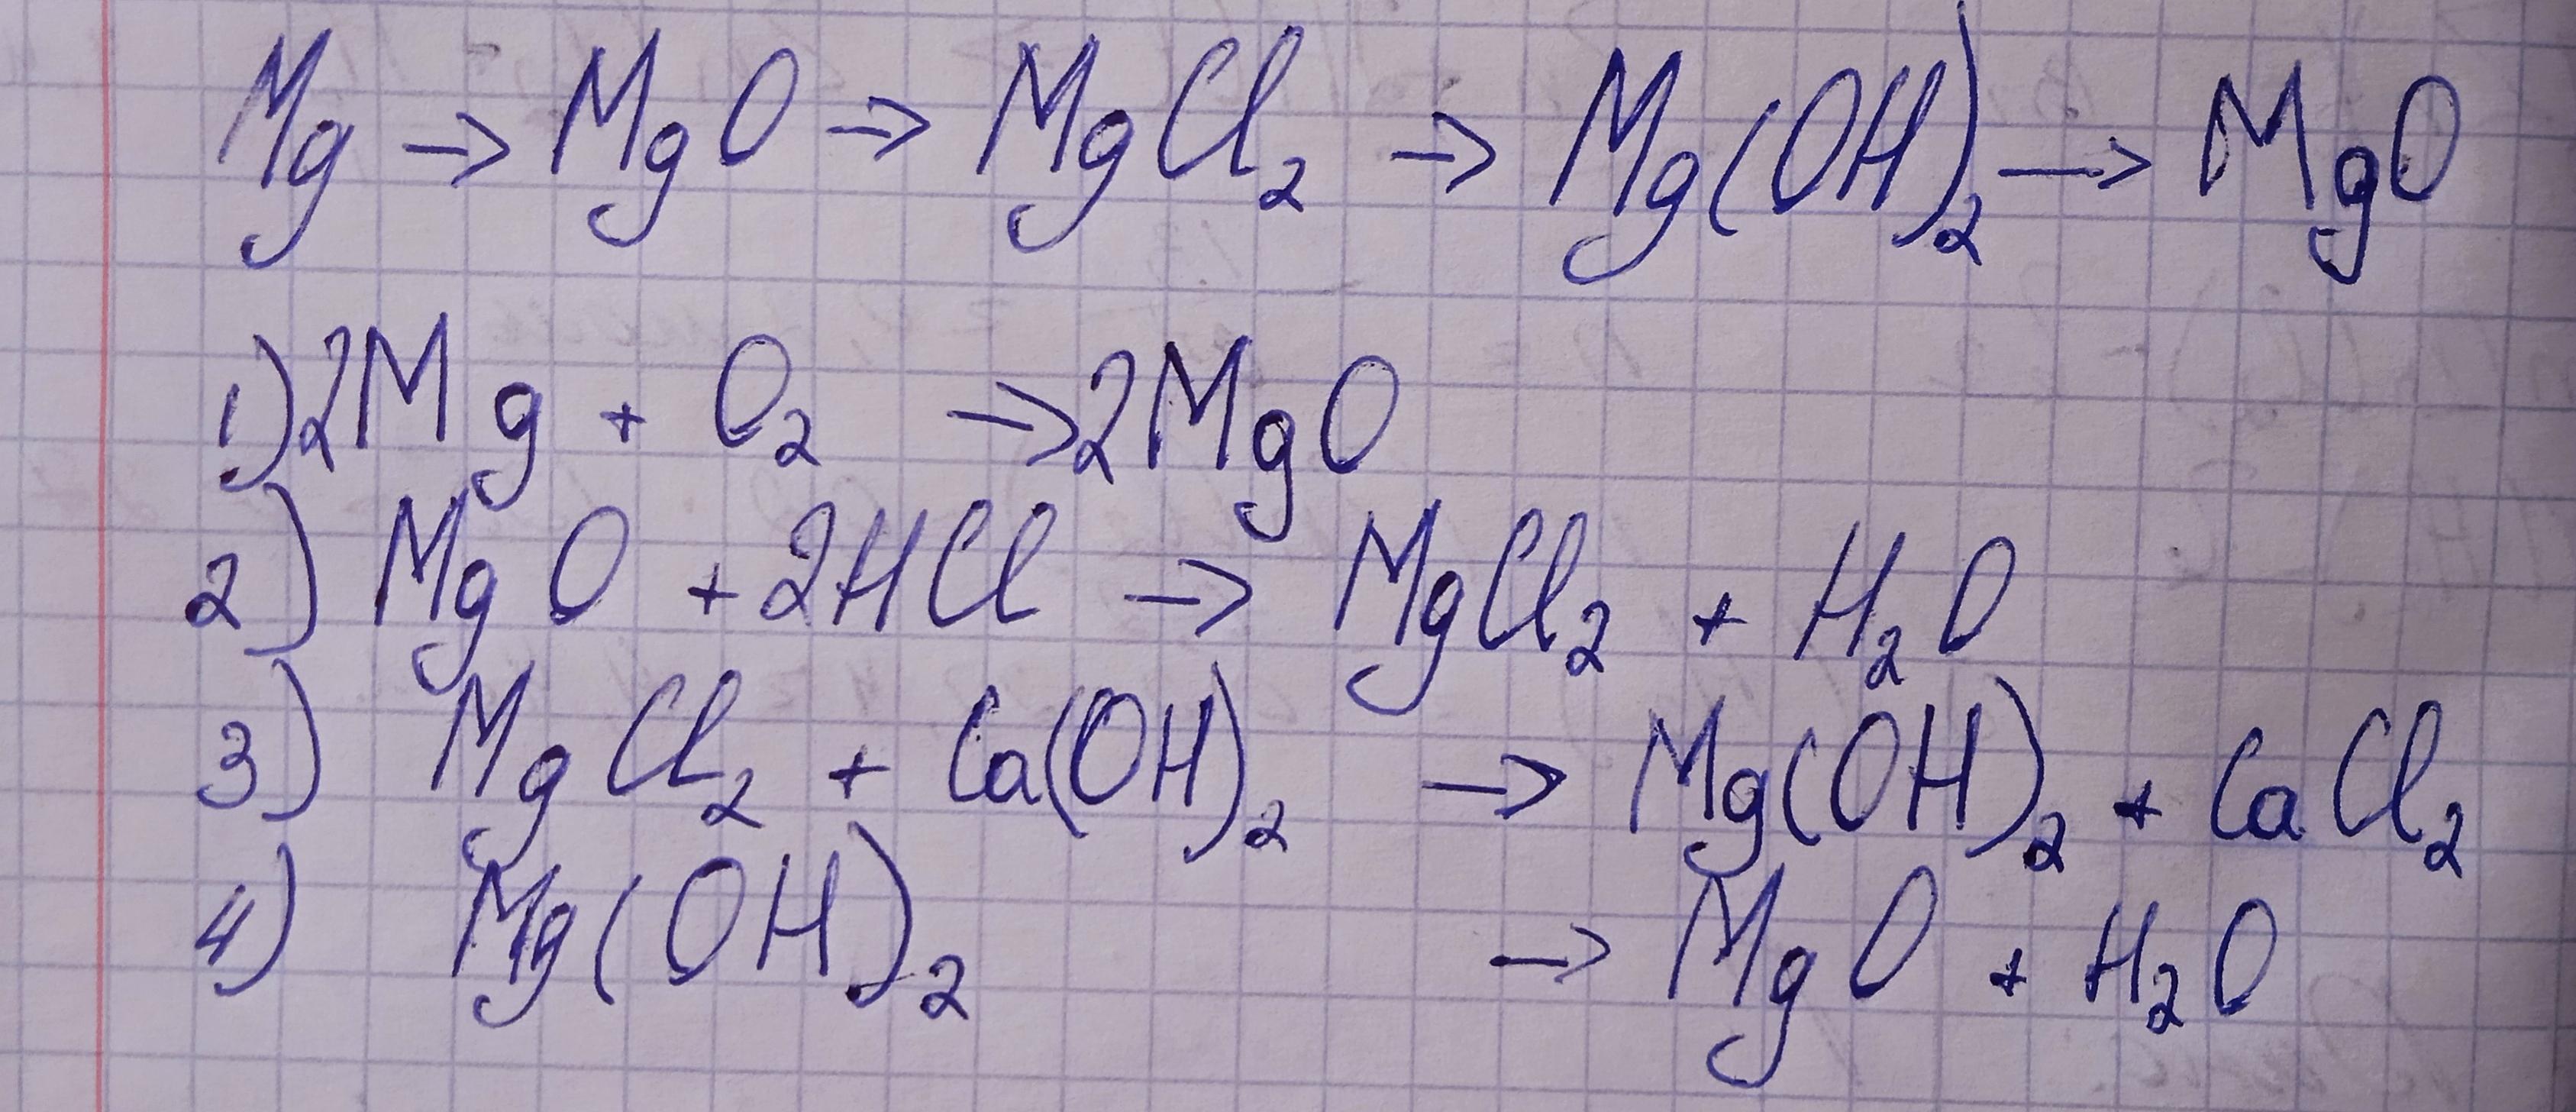 Mg → MgO → MgCl₂ → Mg(OH)₂ → MgO
1) 2Mg + O₂ → 2MgO
2) MgO + 2HCl → MgCl₂ + H₂O
3) MgCl₂ + Ca(OH)₂ → Mg(OH)₂ + CaCl₂
4) Mg(OH)₂ → MgO + H₂O